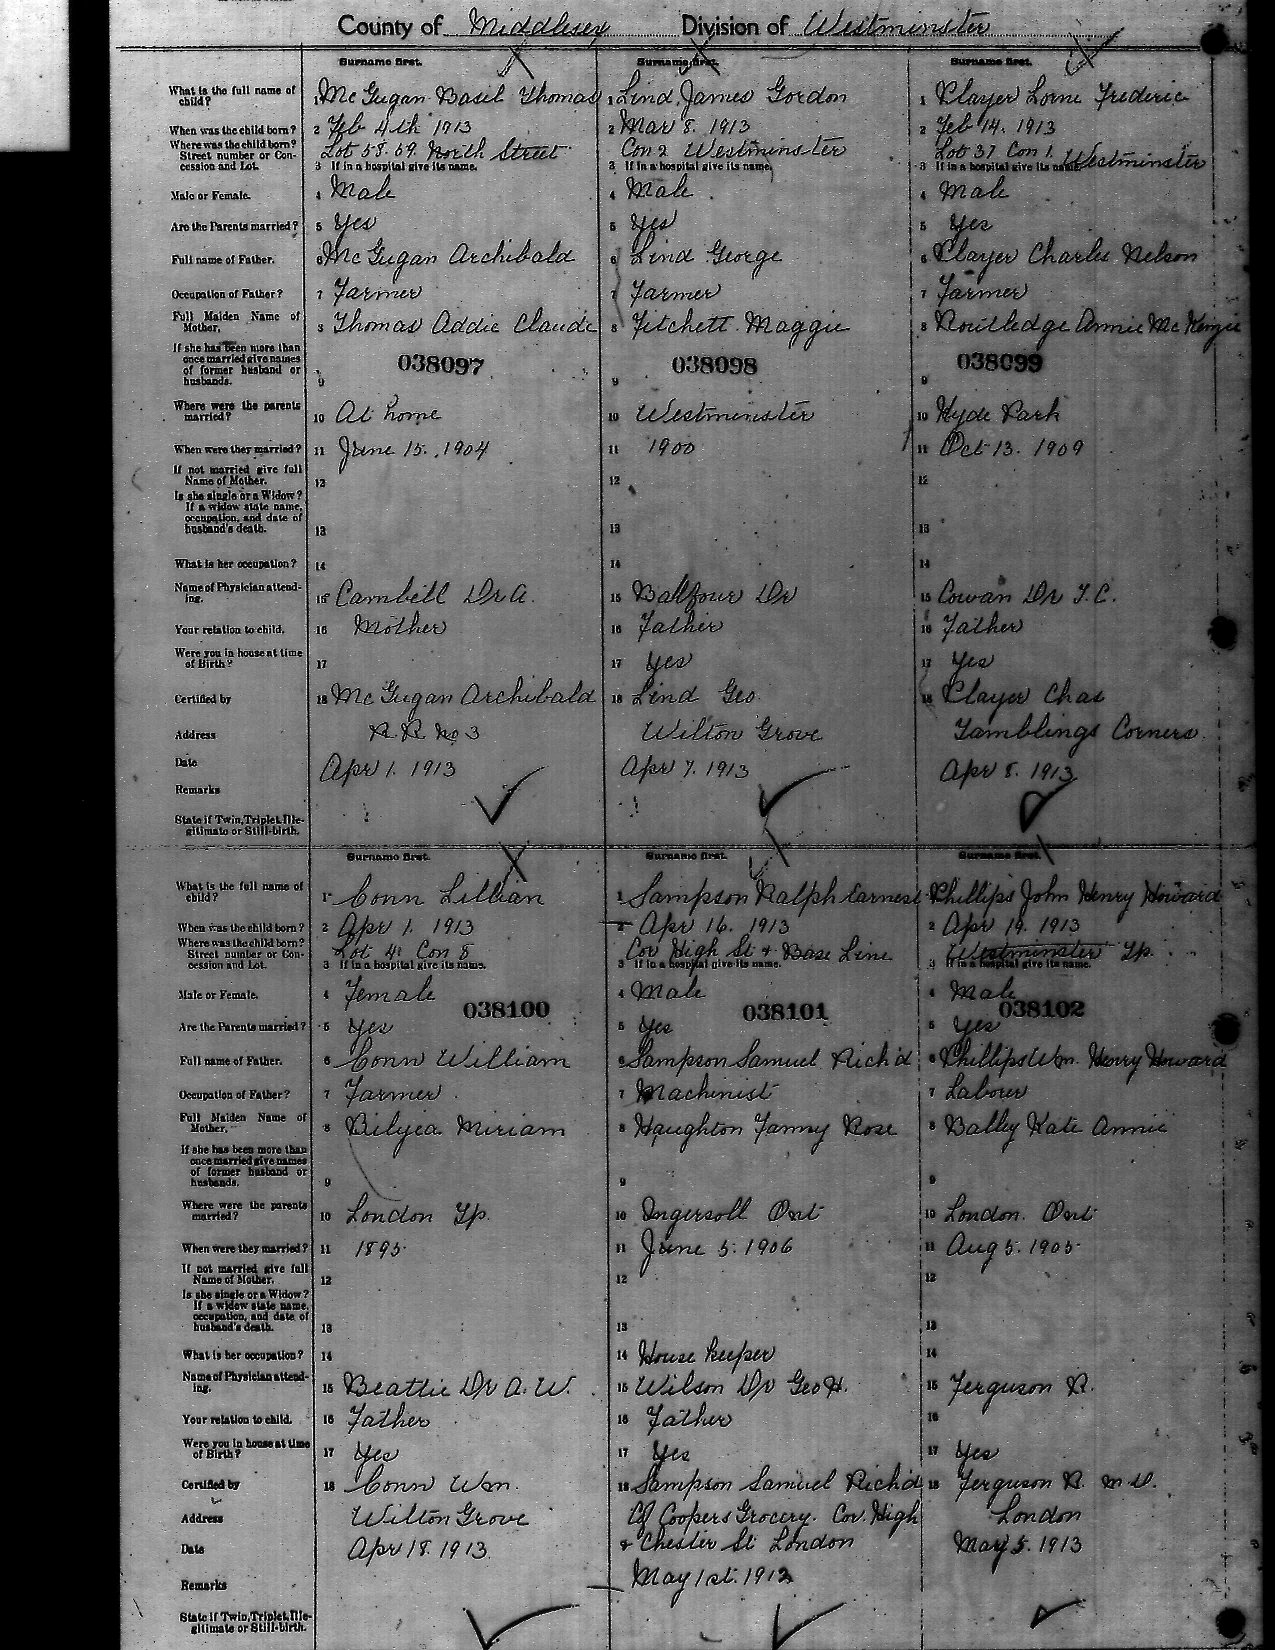 County of Middlesex Division of Westminster
Surname first. Surname first. Surname first.
What is the full name of child? 1 McGugan Basil Thomas 1 Lind, James Gordon 1 Player Lorne Frederic
When was the child born? 2 Feb 4th 1913 2 Mar 8. 1913 2 Feb 14. 1913
Where was the child born? Street number or Concession and Lot. 3 Lot 58.69. North Street If in a hospital give its name. 3 Con 2 Westminster If in a hospital give its name. 3 Lot 37 Con 1. Westminster If in a hospital give its name.
Male or Female. 4 Male 4 Male. 4 Male
Are the Parents married? 5 Yes 5 Yes 5 Yes
Full name of Father. 6 McGugan Archibald 6 Lind George 6 Player Charles Nelson
Occupation of Father? 7 Farmer 7 Farmer 7 Farmer
Full Maiden Name of Mother. 8 Thomas Addie Claude 8 Fitchett Maggie 8 Routledge Annie McKenzie
If she has been more than once married give names of former husband or husbands. 9 038097 9 038098 9 038099
Where were the parents married? 10 At home 10 Westminster 10 Hyde Park
When were they married? 11 June 15. 1904 11 1900 11 Oct 13. 1909
If not married give full Name of Mother. 12 12 12
Is she single or a Widow? If a widow state name, occupation, and date of husband's death. 13 13 13
What is her occupation? 14 14 14
Name of Physician attending. 15 Cambell Dr A. 15 Balfour Dr 15 Cowan Dr T.C.
Your relation to child. 16 Mother 16 Father 16 Father
Were you in house at time of Birth? 17 17 Yes 17 Yes
Certified by 18 McGugan Archibald 18 Lind Geo. 18 Player Chas
Address R.R. No 3 Wilton Grove Tamblings Corners
Date Apr 1. 1913 Apr 7. 1913 Apr 8. 1913
Remarks
State if Twin, Triplet, Illegitimate or Still-birth.
Surname first. Surname first. Surname first.
What is the full name of child? 1 Conn Lillian 1 Sampson Ralph Earnest Phillips John Henry Howard
When was the child born? 2 Apr 1. 1913 2 Apr 16. 1913 2 Apr 19. 1913
Where was the child born? Street number or Concession and Lot. 3 Lot 41 Con 8 If in a hospital give its name. 3 Cor High St & Base Line If in a hospital give its name. 3 Westminster Tp. If in a hospital give its name.
Male or Female. 4 Female 038100 4 Male 038101 4 Male 038102
Are the Parents married? 5 Yes 5 Yes 5 Yes
Full name of Father. 6 Conn William 6 Sampson Samuel Rich'd 6 Phillips Wm. Henry Howard
Occupation of Father? 7 Farmer. 7 Machinist 7 Laborer
Full Maiden Name of Mother. 8 Bilyea Miriam 8 Haughton Fanny Rose 8 Balley Kate Annie
If she has been more than once married give names of former husband or husbands. 9 9 9
Where were the parents married? 10 London Tp. 10 Ingersoll Ont 10 London. Ont
When were they married? 11 1895 11 June 5. 1906 11 Aug 5. 1905
If not married give full Name of Mother. 12 12 12
Is she single or a Widow? If a widow state name, occupation, and date of husband's death. 13 13 13
What is her occupation? 14 14 House keeper 14
Name of Physician attending. 15 Beattie Dr A. W. 15 Wilson Dr Geo H. 15 Ferguson R.
Your relation to child. 16 Father 16 Father 16
Were you in house at time of Birth? 17 Yes 17 Yes 17 Yes
Certified by 18 Conn Wm. 18 Sampson Samuel Rich'd 18 Ferguson R. M D.
Address Wilton Grove Coopers Grocery. Cor. High London
Date Apr 18. 1913. & Chester St London May 5. 1913
Remarks May 1st. 1913
State if Twin, Triplet, Illegitimate or Still-birth.